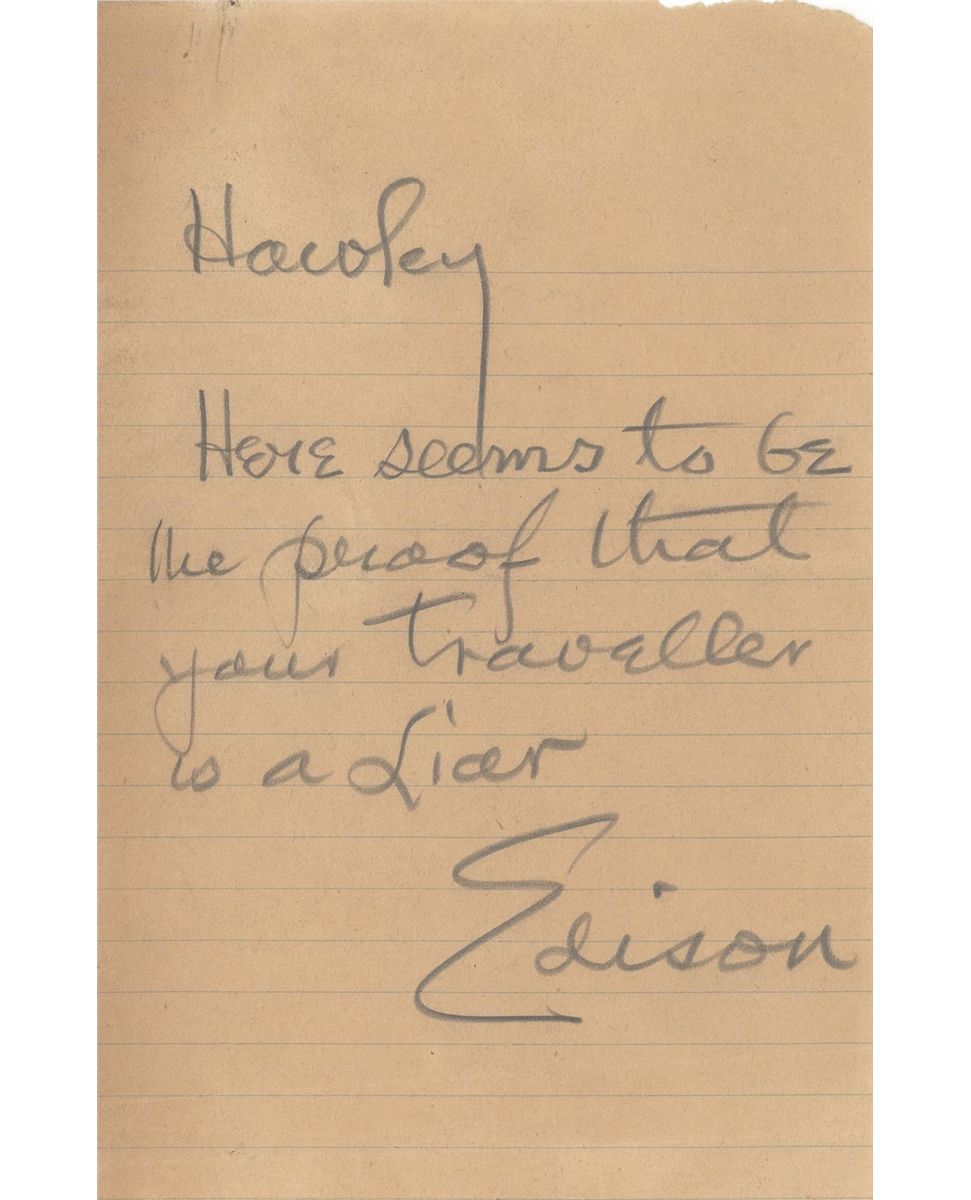 Hawley
Here seems to be
the proof that
your traveller
is a Liar
Edison